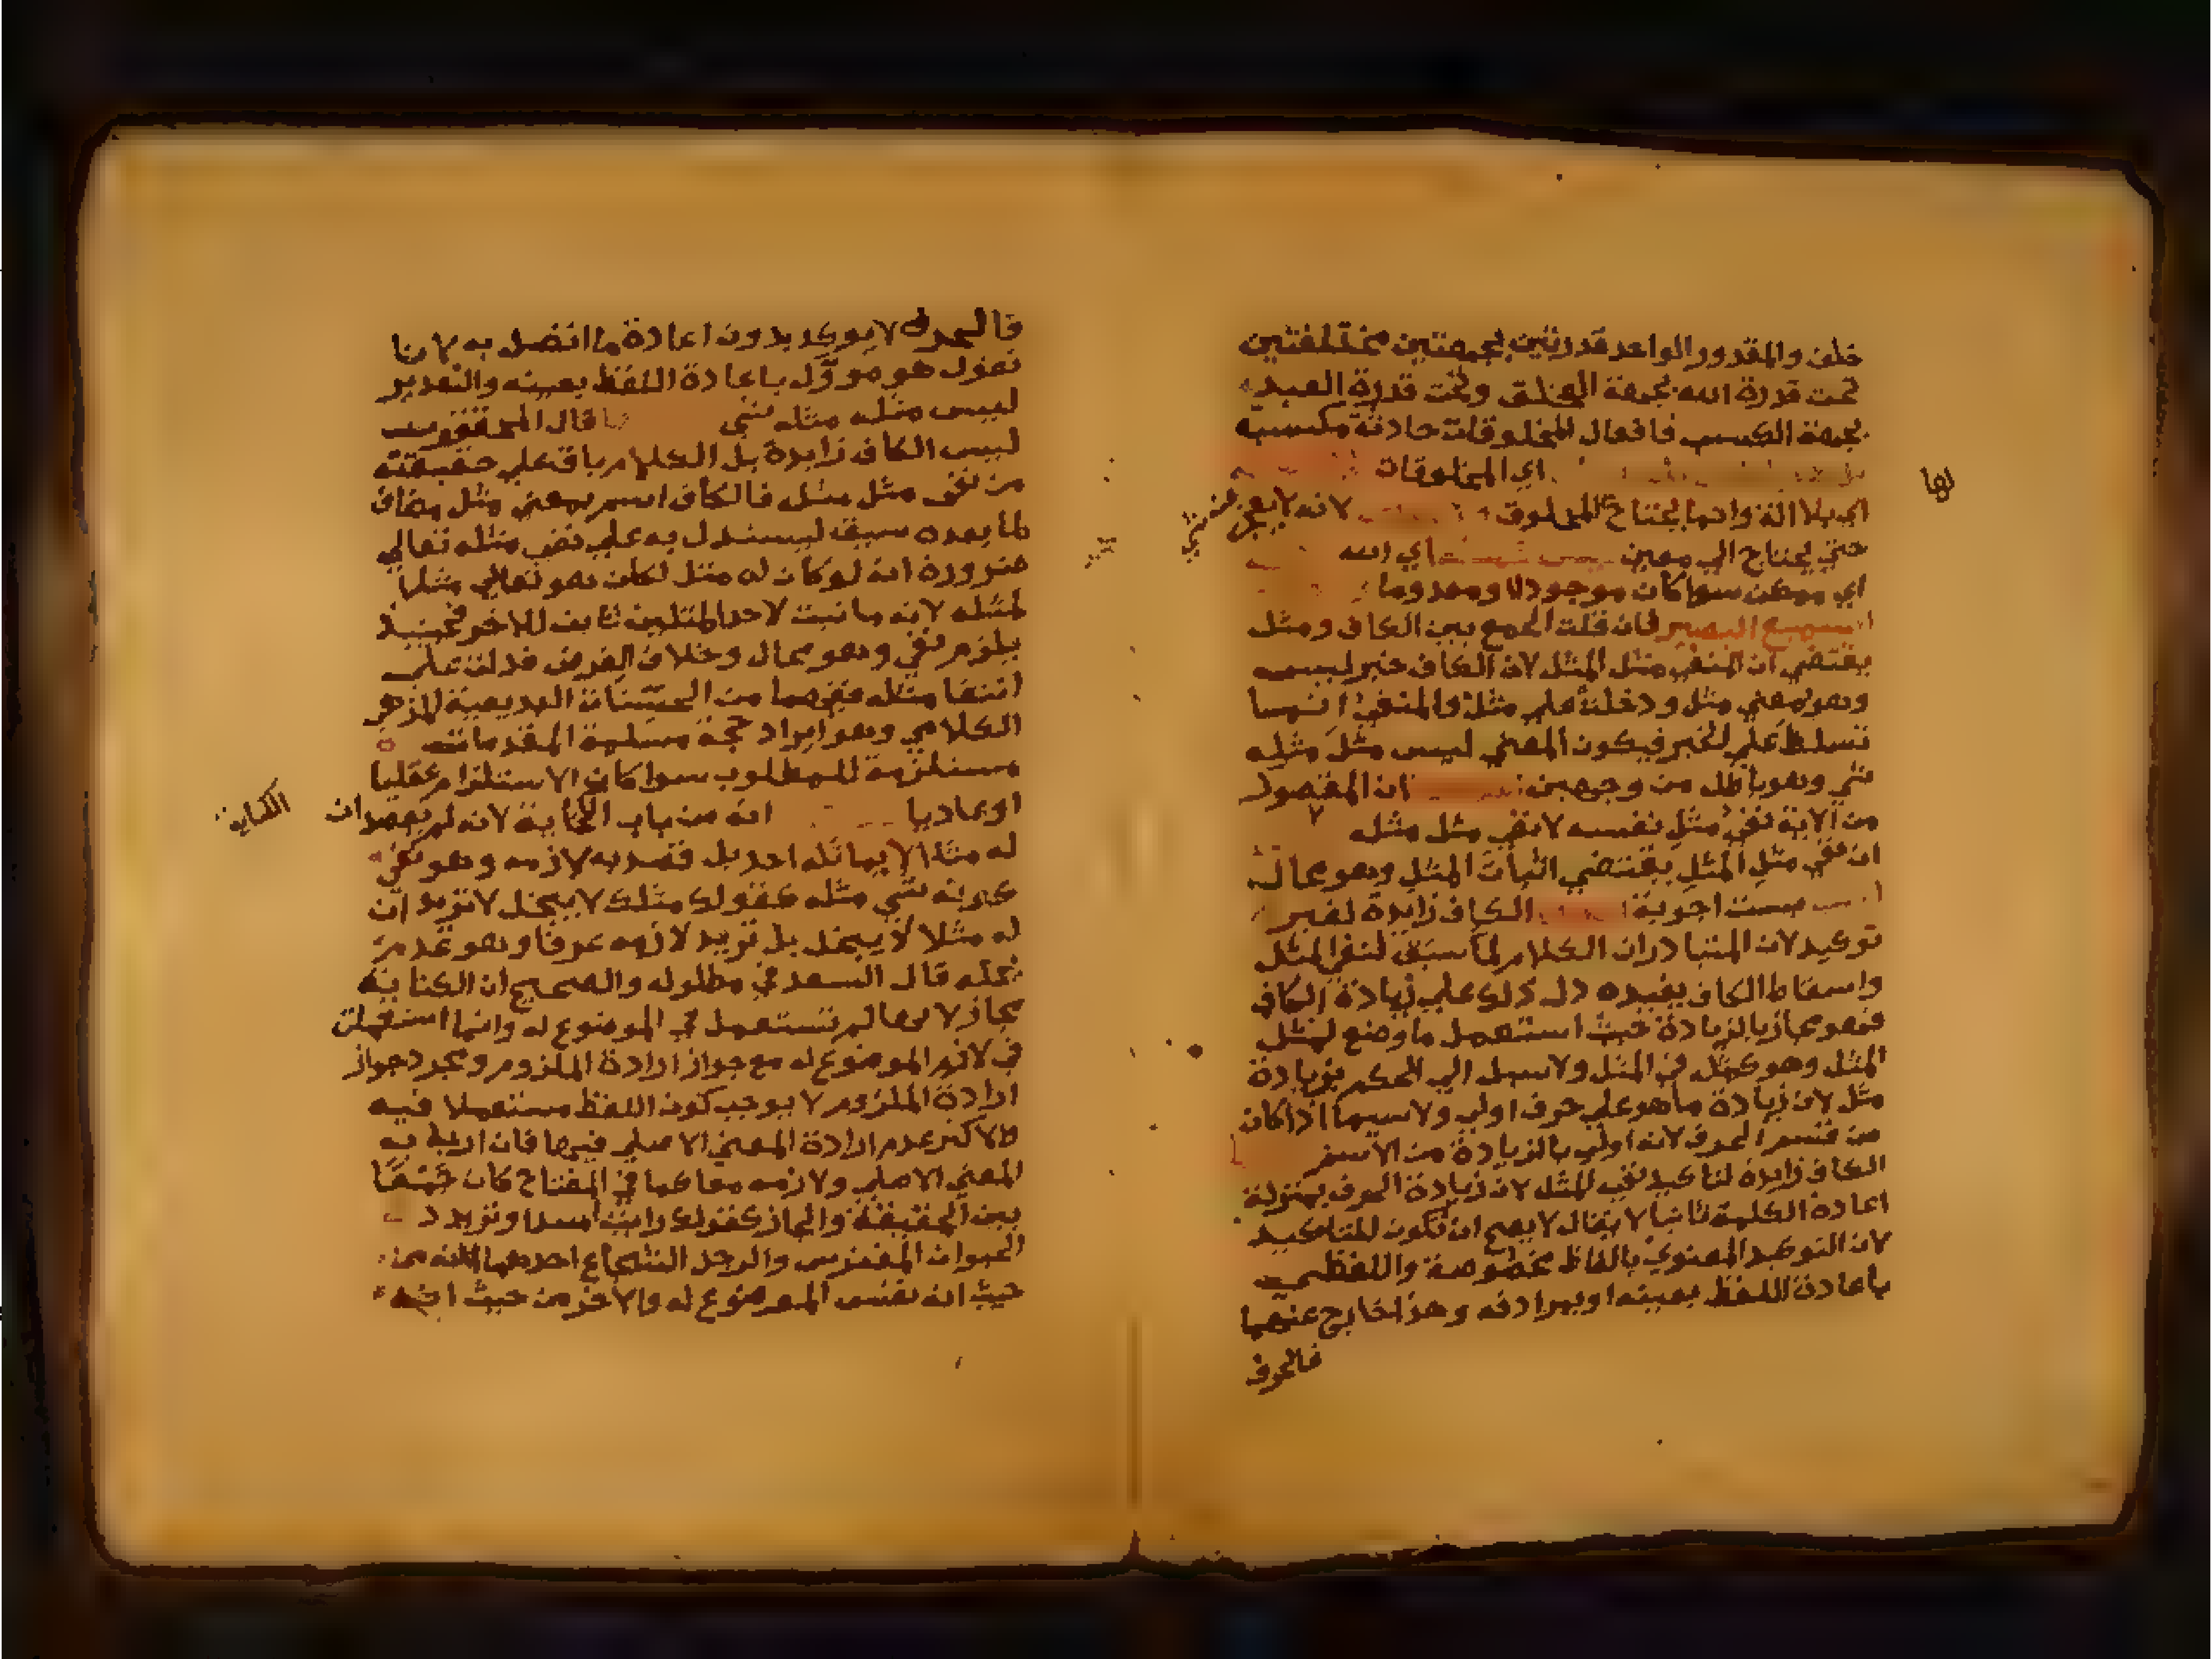 خلق والمقدور الواحد قدرتين بجهتين مختلفتين
تحت قدرة الله بجهة الخلق وتحت قدرة العبد
بجهة الكسب فافعال المخلوقات حادثة مكتسبة
لها
اي المخلوقات
اي بلا الة وانما يحتاج المخلوق لانه لا يعجز عن شي
حتي يحتاج الي معين اي الله
اي ممكن سواكان موجودا او معدوما
السميع البصير فان قلت الجمع بين الكاف ومثل
يقتضي ان المنفي مثل المثل لان الكاف خبر ليس
وهو بمعني مثل ودخلت علي مثل والمنفي انما
تسلط علي الخبر فيكون المعني ليس مثل مثله
شي وهو باطل من وجهين ان المقصود
من الاية نفي مثل نفسه لا نفي مثل مثله
ان نفي مثل المثل يقتضي اثبات المثل وهو محال
اجوبة الكاف زايدة لغير
توكيد لان المتبادر ان الكلام لما سبق لنفي المثل
واسقاط الكاف يفيده دل ذلك علي زيادة الكاف
فهو مجاز بالزيادة حيث استعمل ما وضع لمثل
المثل وهو كمثل في المثل ولا سبيل الي الحكم بزيادة
مثل لان زيادة ماهو علي حرف اولي ولا سيما اذا كان
من قسم الحرف لانه اولي بالزيادة من الاسم
الكاف زايدة لتاكيد نفي المثل لان زيادة الحرف بمنزلة
اعادة الكلمة ثانيا لا يقال لا يصح ان تكون للتاكيد
لان التوكيد المعنوي بالفاظ مخصوصة واللفظي
باعادة اللفظ بعينه او بمرادفه وهذا خارج عنهما
فالحرف
فالحرف لا يوكد بدون اعادة ما اتصل به لانا
نقول هو موول باعادة اللفظ بعينه والتقدير
ليس مثله مثله شي قال المحققون
ليس الكاف زايدة بل الكلام باق علي حقيقته
من نفي مثل مثله فالكاف اسم بمعني مثل مضاف
لما بعده سيق ليستدل به علي نفي مثله تعالي
ضرورة انه لو كان له مثل لكان هو تعالي مثلا
لمثله لانه ما ثبت لاحد المثلين ثابت للاخر فحينئذ
يلزم نفي وهو محال وخلاف الفرض فدلت علي
انتفا مثله ففيهما من المحسنات البديعية المذهب
الكلامي وهو ايراد حجة مسلمة المقدمات
مستلزمة للمطلوب سوا كان الاستلزام عقليا
او عاديا انه من باب الكناية لانه لم يقصد ان
الكناية
له مثلا لا يماثله احد بل قصد به لازمه وهو نفي
كونه شي مثله كقولك مثلك لا يبخل لا تريد ان
له مثلا لا يبخل بل تريد لازمه عرفا وهو عدم
بخله قال السعد في مطوله والصحيح ان الكناية
مجاز لانها لم تستعمل في الموضوع له وانما استعملت
في لازم الموضوع له مع جواز ارادة الملزوم ومجرد جواز
ارادة الملزوم لا يوجب كون اللفظ مستعملا فيه
عدم ارادة المعني الاصلي فيها فان اريد به
المعني الاصلي ولازمه معا كما في المفتاح كان جمعا
بين الحقيقة والمجاز كقولك رايت اسدا وتريد
الحيوان المفترس والرجل الشجاع احدهما من
حيث انه نفس الموضوع له والاخر من حيث انه